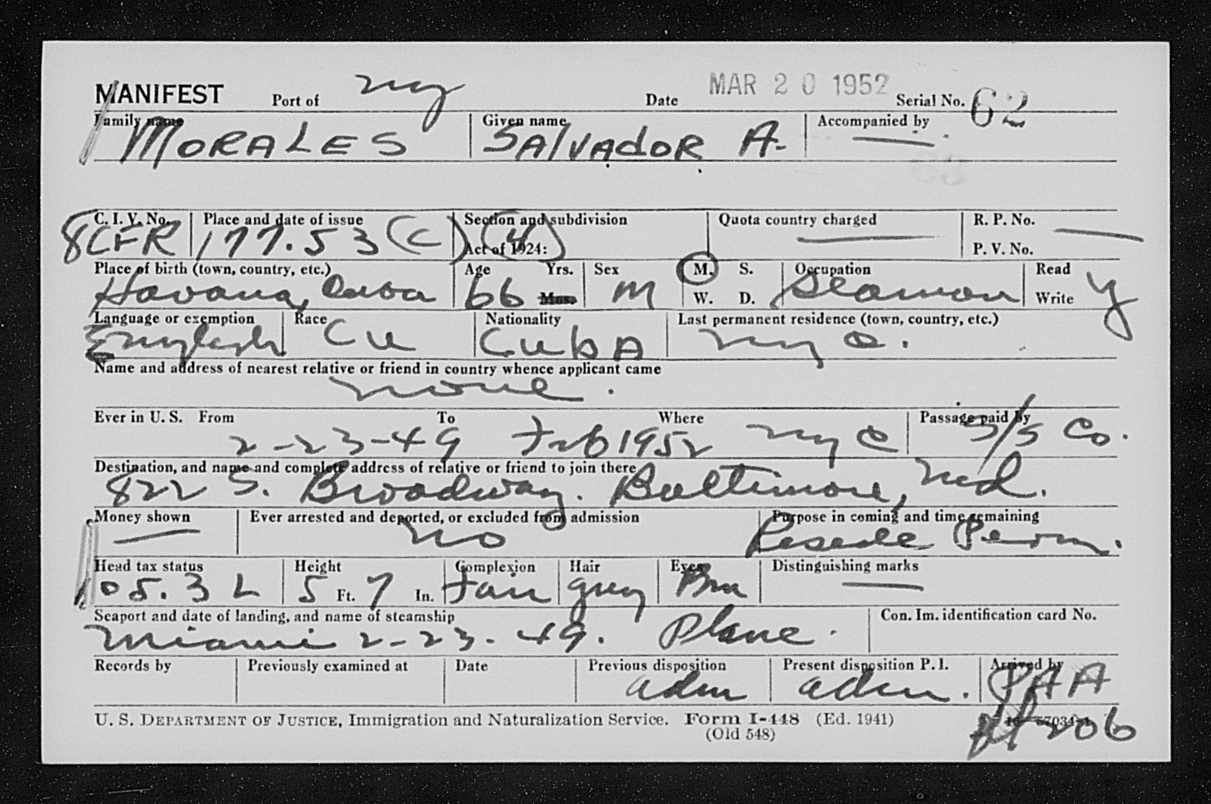 MANIFEST Port of ny Date MAR 20 1952 Serial No. 62
Family name MORALES Given name SALVADOR A. Accompanied by —
C. I. V. No. Place and date of issue Section and subdivision Quota country charged — R. P. No. —
8CFR 177.53 (C) (4) Act of 1924: P. V. No.
Place of birth (town, country, etc.) Age Yrs. Sex M. S. Occupation Read
Havana, Cuba 66 Mos. M W. D. Seaman Write y
Language or exemption Race Nationality Last permanent residence (town, country, etc.)
English Cu CUBA nyc.
Name and address of nearest relative or friend in country whence applicant came
none.
Ever in U. S. From To Where Passage paid by
2-23-49 Feb 1952 nyc S/S Co.
Destination, and name and complete address of relative or friend to join there
822 S. Broadway. Baltimore, Md.
Money shown Ever arrested and deported, or excluded from admission Purpose in coming and time remaining
— no Reside Perm.
Head tax status Height Complexion Hair Eyes Distinguishing marks
105.3 L 5 Ft. 7 In. Fair grey Brn —
Seaport and date of landing, and name of steamship Con. Im. identification card No.
Miami 2-23-49. Plane.
Records by Previously examined at Date Previous disposition Present disposition P. I. Arrived by
adm adm. PAA
U. S. DEPARTMENT OF JUSTICE, Immigration and Naturalization Service. Form I-448 (Ed. 1941)
(Old 548) 206